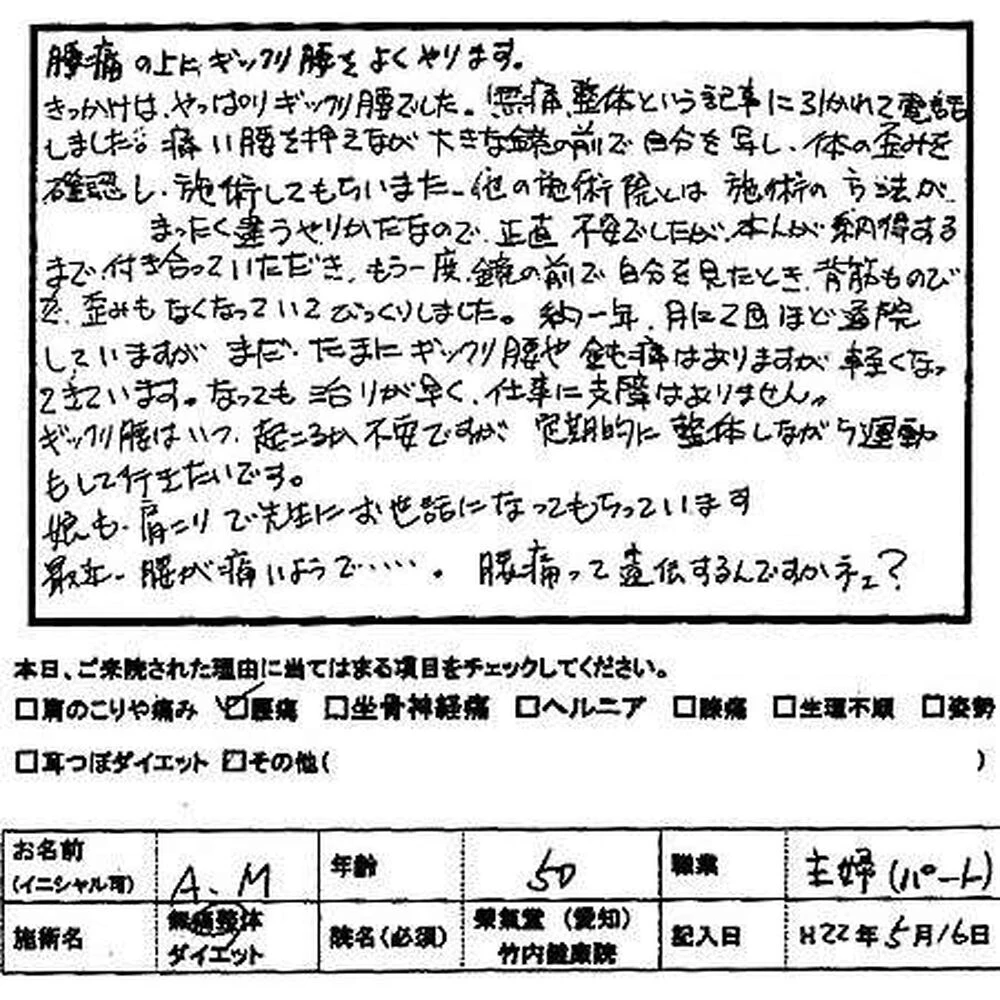 腰痛の上に、ギックリ腰をよくやります。
きっかけは、やっぱりギックリ腰でした。無痛整体という記事に引かれて電話
しました。痛い腰を押えながら大きな鏡の前で自分を写し、体の歪みを
確認し、施術してもらいました。他の施術院とは施術の方法が、
まったく違うやりかたなので、正直不安でしたが、本人が納得する
まで付き合っていただき、もう一度、鏡の前で自分を見たとき、背筋ものび
て、歪みもなくなっていてびっくりしました。約一年、月に2回ほど通院
していますが、まだ、たまにギックリ腰や鈍痛はありますが軽くなっ
てきています。なっても治りが早く、仕事に支障はありません。
ギックリ腰はいつ、起こるか不安ですが定期的に整体しながら運動
もして行きたいです。
娘も、肩こりで先生にお世話になってもらっています
最近、腰が痛いようで……。腰痛って遺伝するんですかネェ?
本日、ご来院された理由に当てはまる項目をチェックしてください。
□肩のこりや痛み ☑腰痛 □坐骨神経痛 □ヘルニア □膝痛 □生理不順 □姿勢
□耳つぼダイエット □その他( )
お名前(イニシャル可) A.M 年齢 50 職業 主婦(パート)
施術名 無痛整体 ダイエット 院名(必須) 榮氣堂(愛知) 竹内健康院 記入日 H22年5月16日